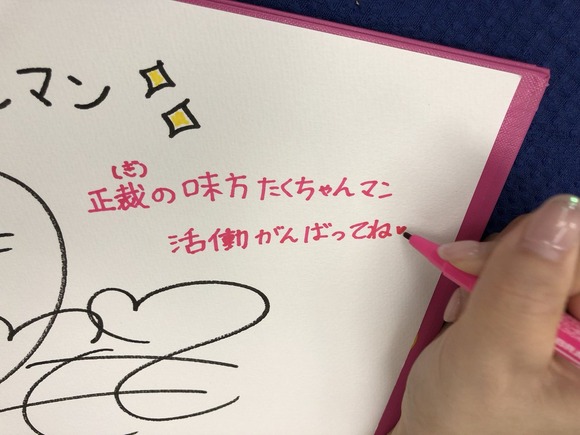 んマン
(ぎ)
正裁の味方たくちゃんマン
活働がんばってね♥